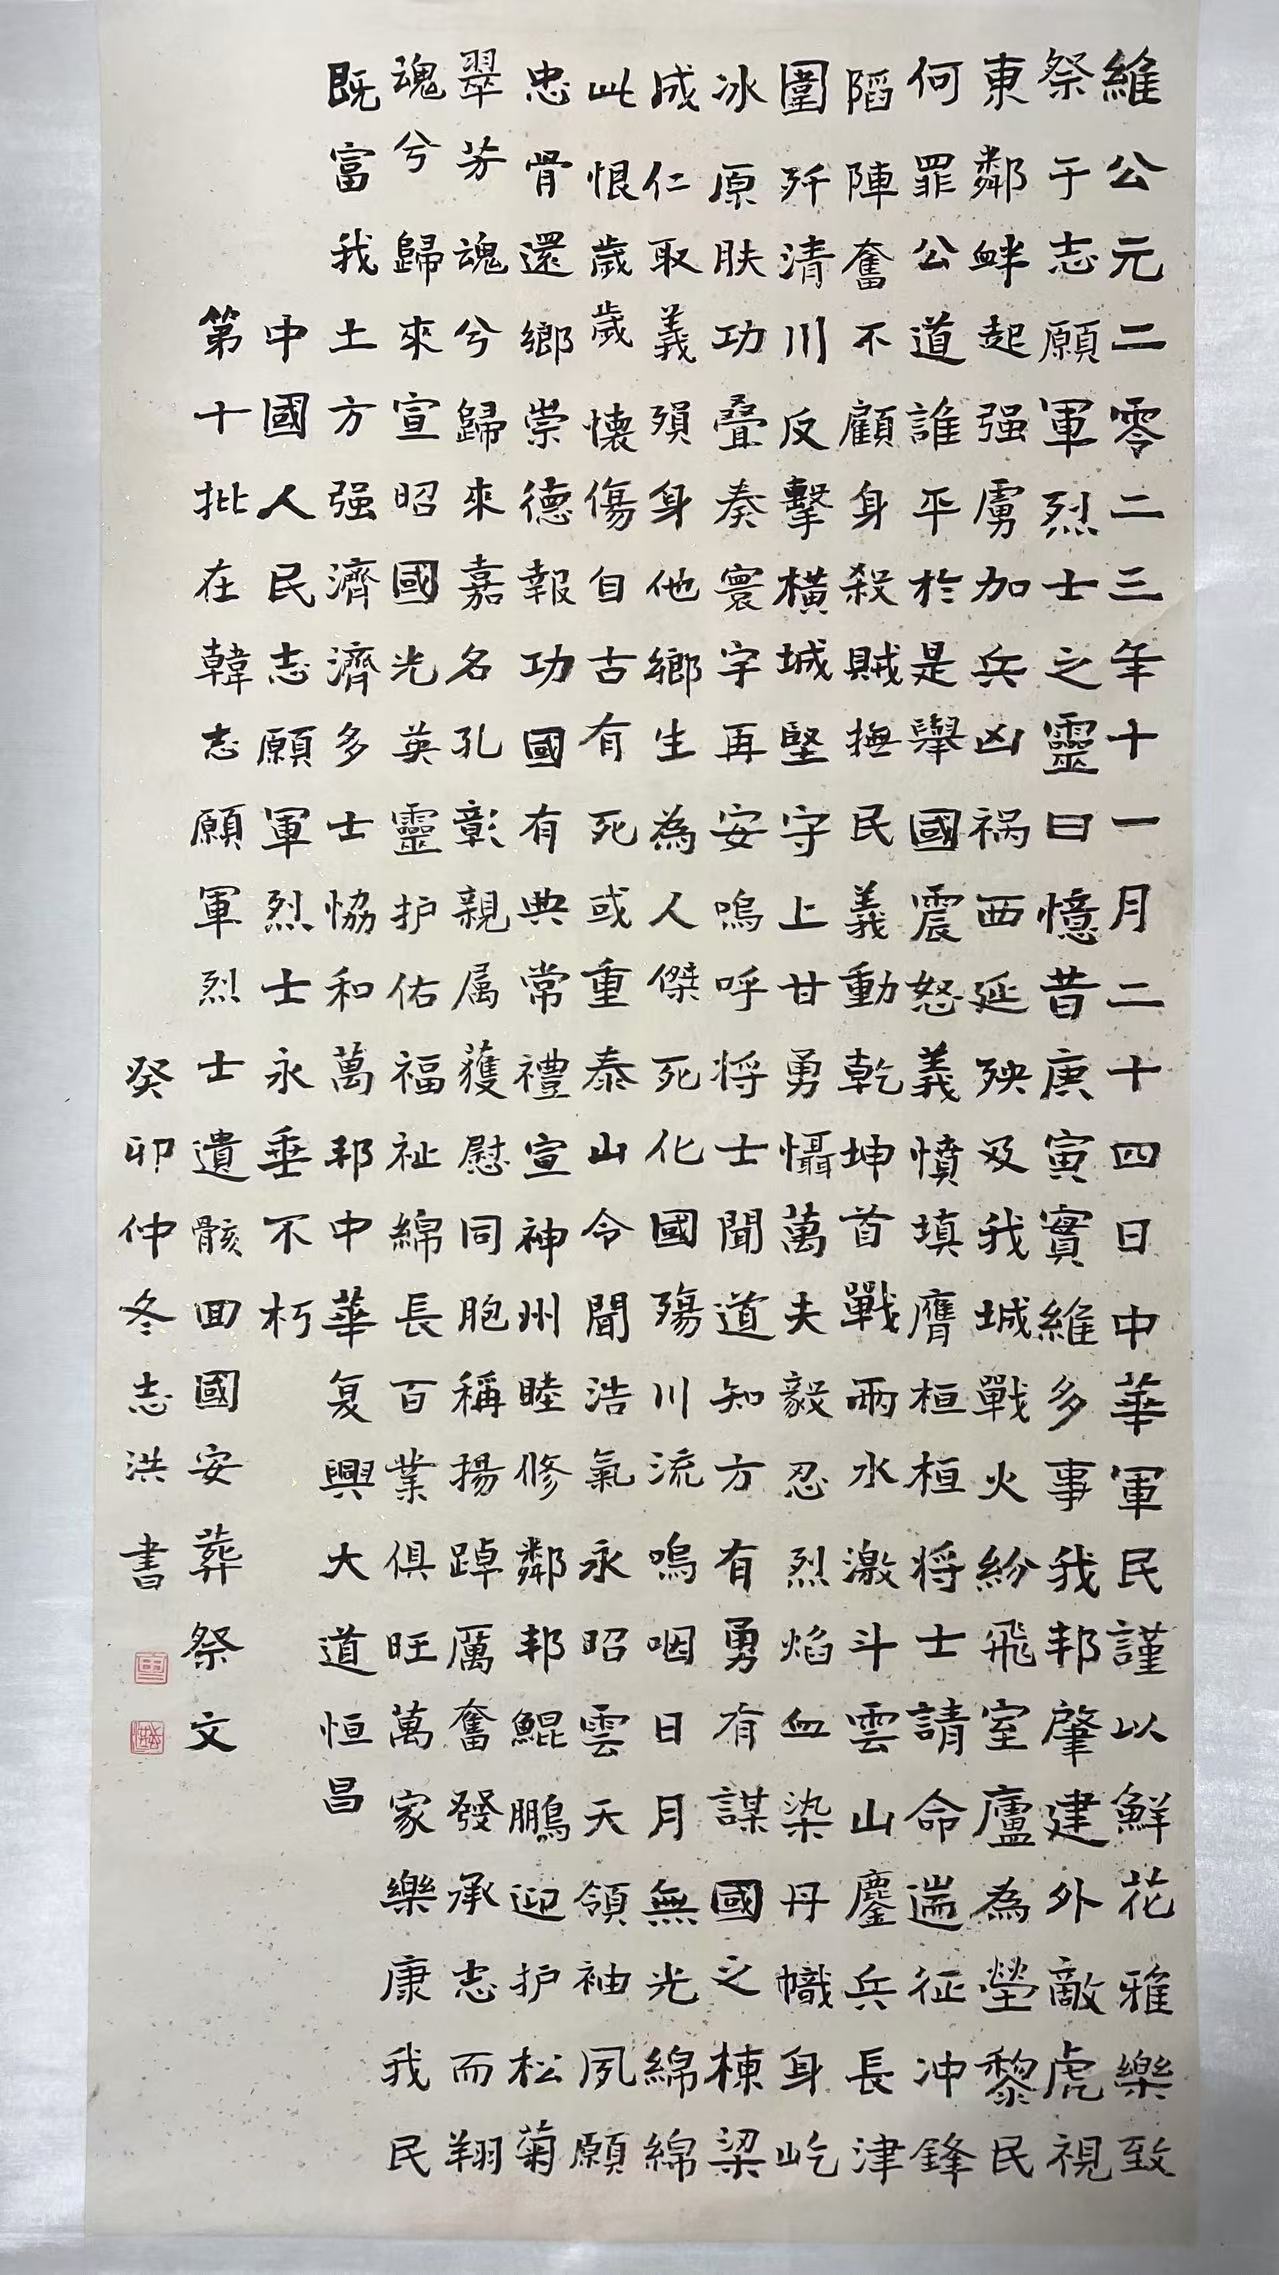 維公元二零二三年十一月二十四日中華軍民謹以鮮花雅樂致
祭于志願軍烈士之靈曰憶昔庚寅實維多事我邦肇建外敵虎視
東鄰衅起强虜加兵凶祸西延殃及我城戰火紛飛室廬為塋黎民
何罪公道誰平於是舉國震怒義憤填膺桓桓将士請命遄征冲鋒
陷陣奮不顧身殺賊撫民義動乾坤首戰兩水激斗雲山鏖兵長津
圍歼清川反擊橫城堅守上甘勇懾萬夫毅忍烈焰血染丹幟身屹
冰原肤功叠奏寰宇再安嗚呼将士聞道知方有勇有謀國之棟梁
成仁取義殞身他鄉生為人傑死化國殤川流嗚咽日月無光綿綿
此恨歲歲懷傷自古有死或重泰山令聞浩氣永昭雲天領袖夙願
忠骨還鄉崇德報功國有典常禮宣神州睦修鄰邦鯤鵬迎护松菊
翠芬魂兮歸來嘉名孔彰親属獲慰同胞稱揚踔厲奮發承志而翔
魂兮歸來宣昭國光英靈护佑福祉綿長百業俱旺萬家樂康我民
既富我土方强濟濟多士協和萬邦中華复興大道恒昌
中國人民志願軍烈士永垂不朽
第十批在韓志願軍烈士遺骸回國安葬祭文
癸卯仲冬志洪書